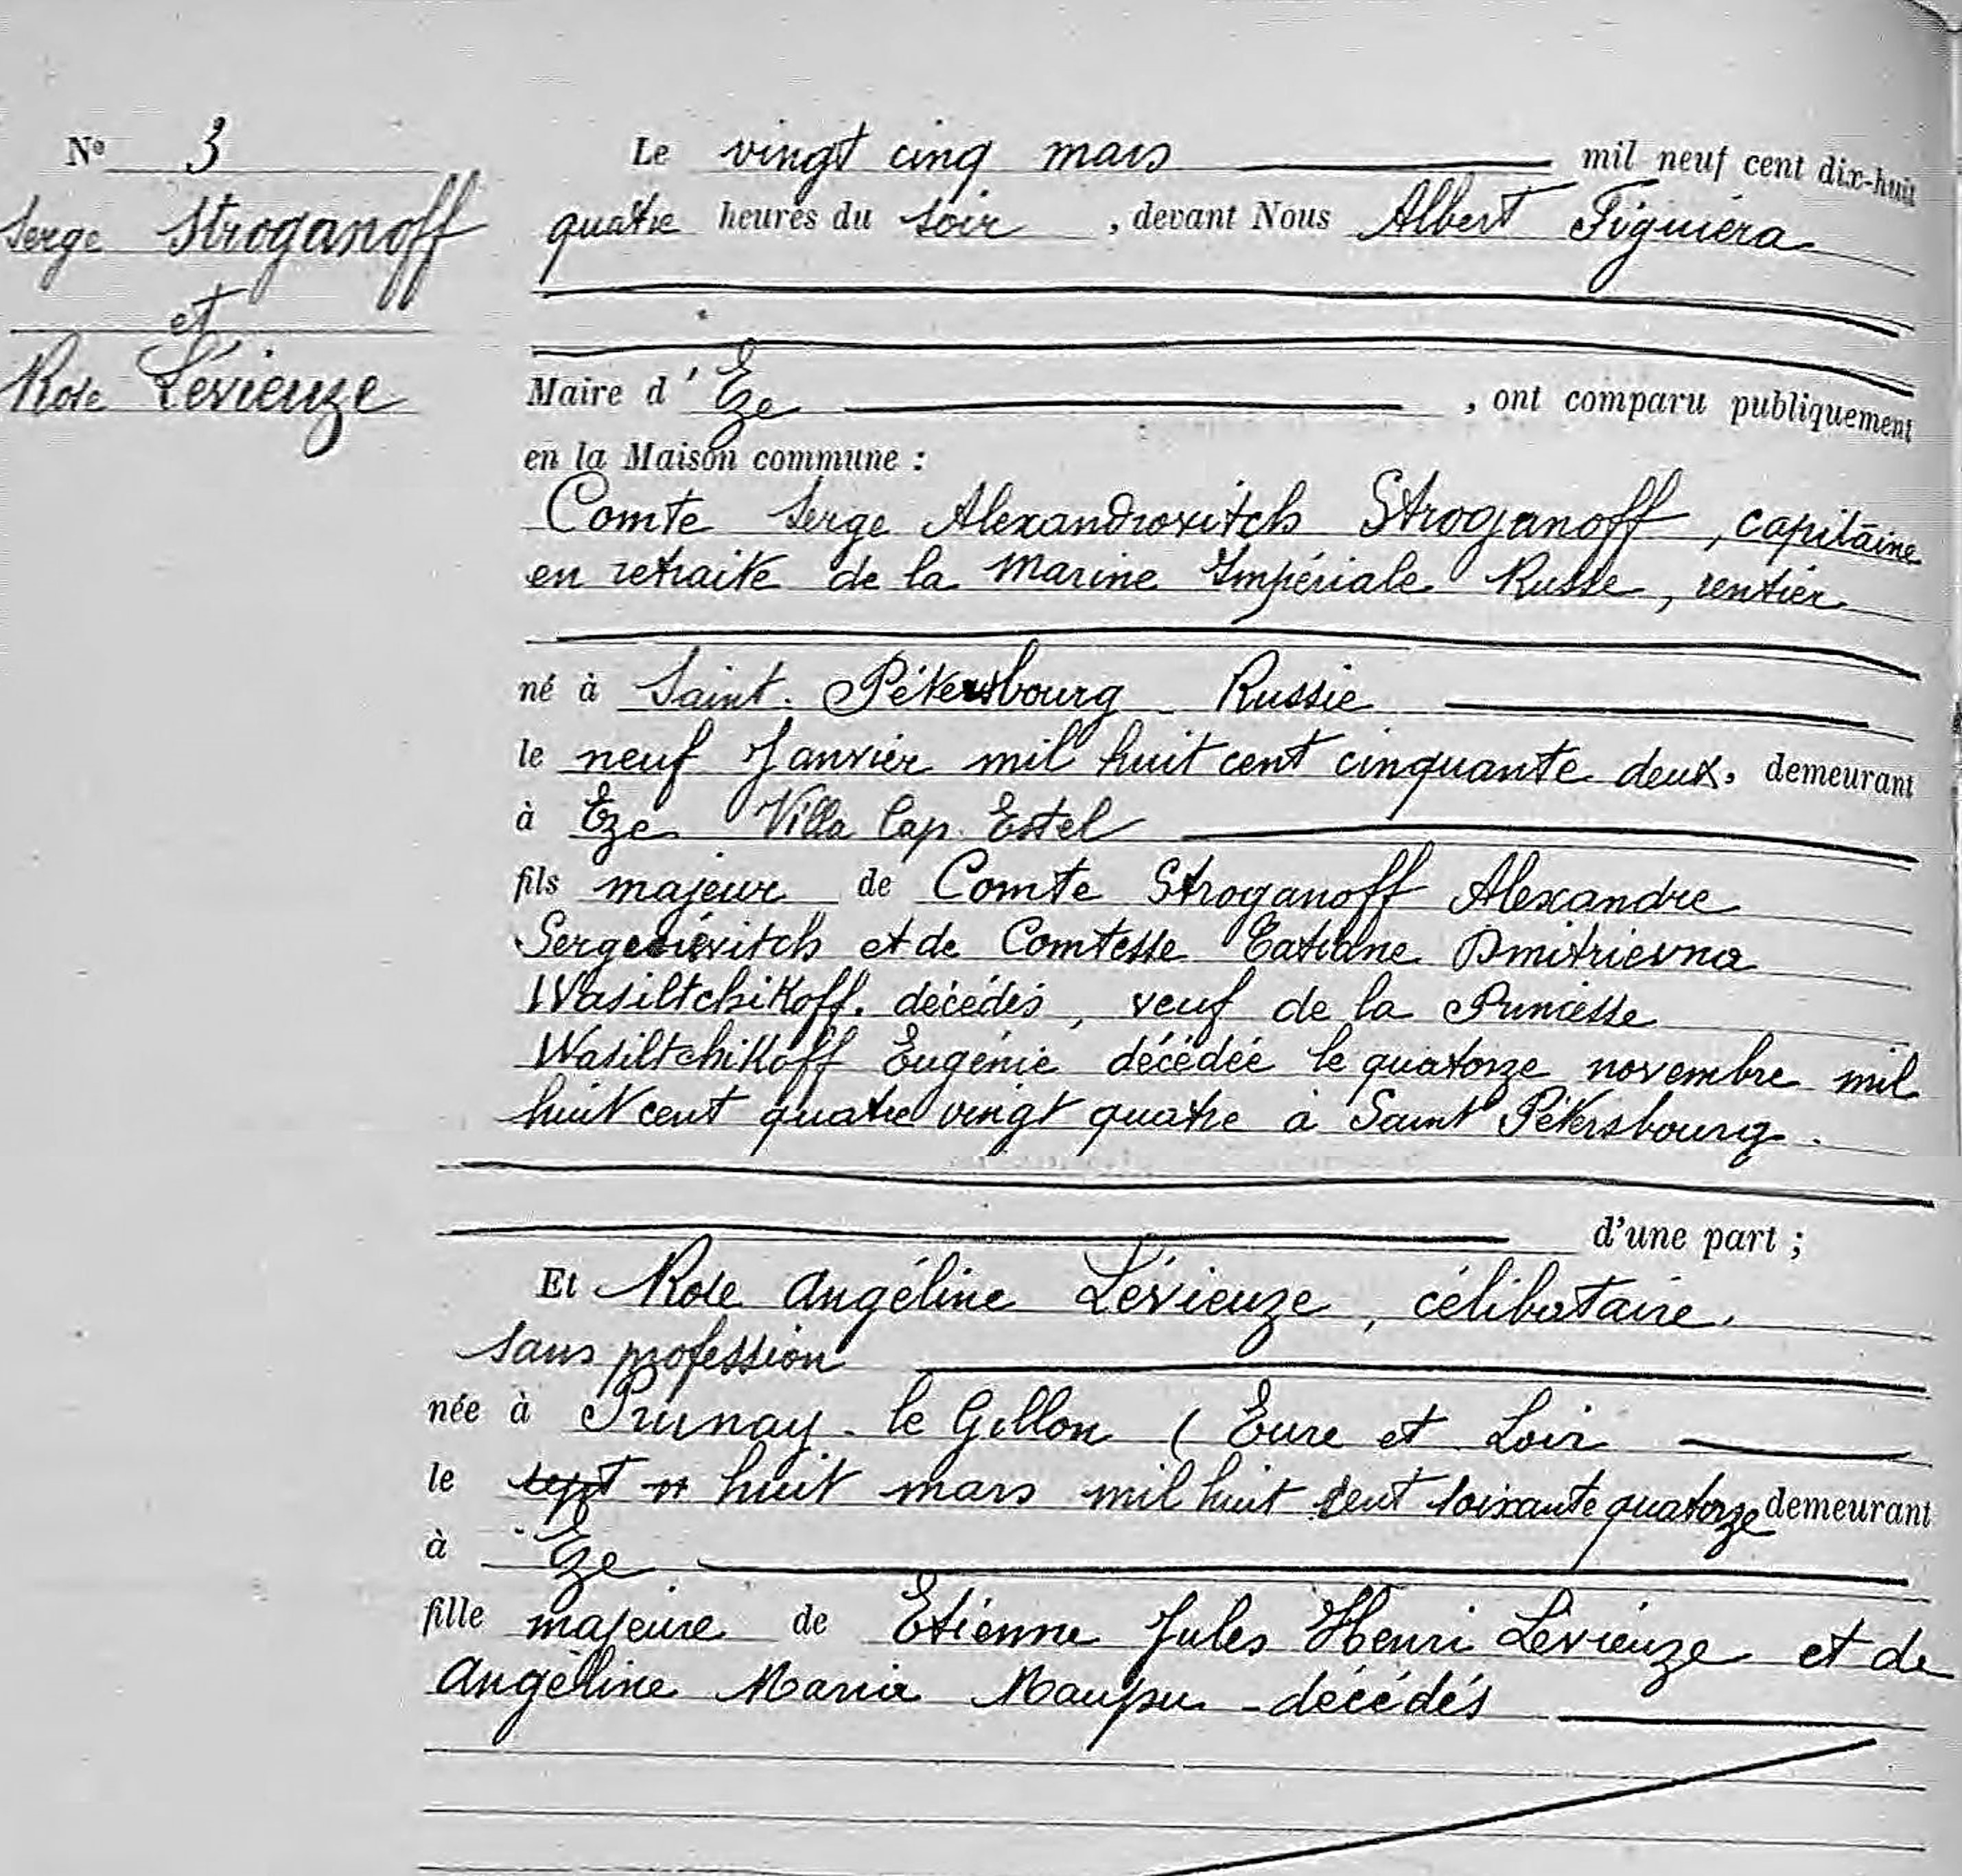 N° 3
Serge Stroganoff
et
Rose Lévieuze
Le vingt cinq mars mil neuf cent dix-huit
quatre heures du soir, devant Nous Albert Figuiéra
Maire d'Eze, ont comparu publiquement
en la Maison commune :
Comte Serge Alexandrovitch Stroganoff, capitaine
en retraite de la Marine Impériale Russe, rentier
né à Saint. Pétersbourg Russie
le neuf Janvier mil huit cent cinquante deux, demeurant
à Eze Villa Cap. Estel
fils majeur de Comte Stroganoff Alexandre
Sergeiévitch et de Comtesse Tatiane Dmitrievna
Wasiltchikoff. décédés, veuf de la Princesse
Wasiltchikoff Eugénie décédée le quatorze novembre mil
huit cent quatre vingt quatre à Saint Pétersbourg.
d'une part ;
Et Rose Angéline Lévieuze, célibataire,
sans profession
née à Prunay-le Gillon (Eure et Loir
le sept huit mars mil huit cent soixante quatorze demeurant
à Eze
fille majeure de Etienne Jules Henri Lévieuze et de
Angéline Maria Maupu décédés